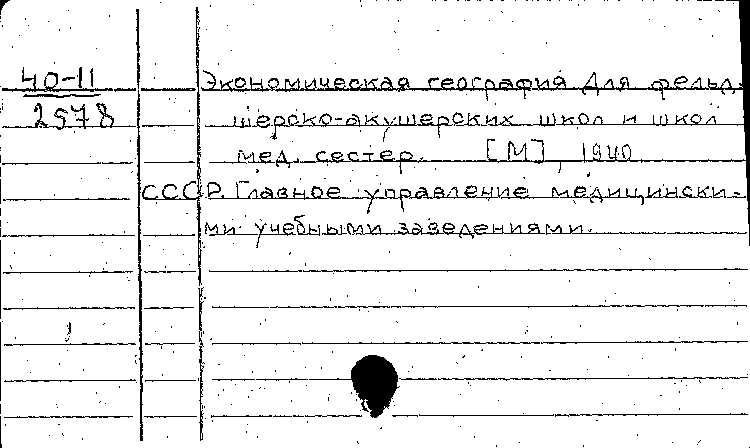 40-11
2578
Экономическая география для фельд-
шерско-акушерских школ и школ
мед. сестер. [М], 1940
СССР. Главное управление медицински-
ми учебными заведениями.